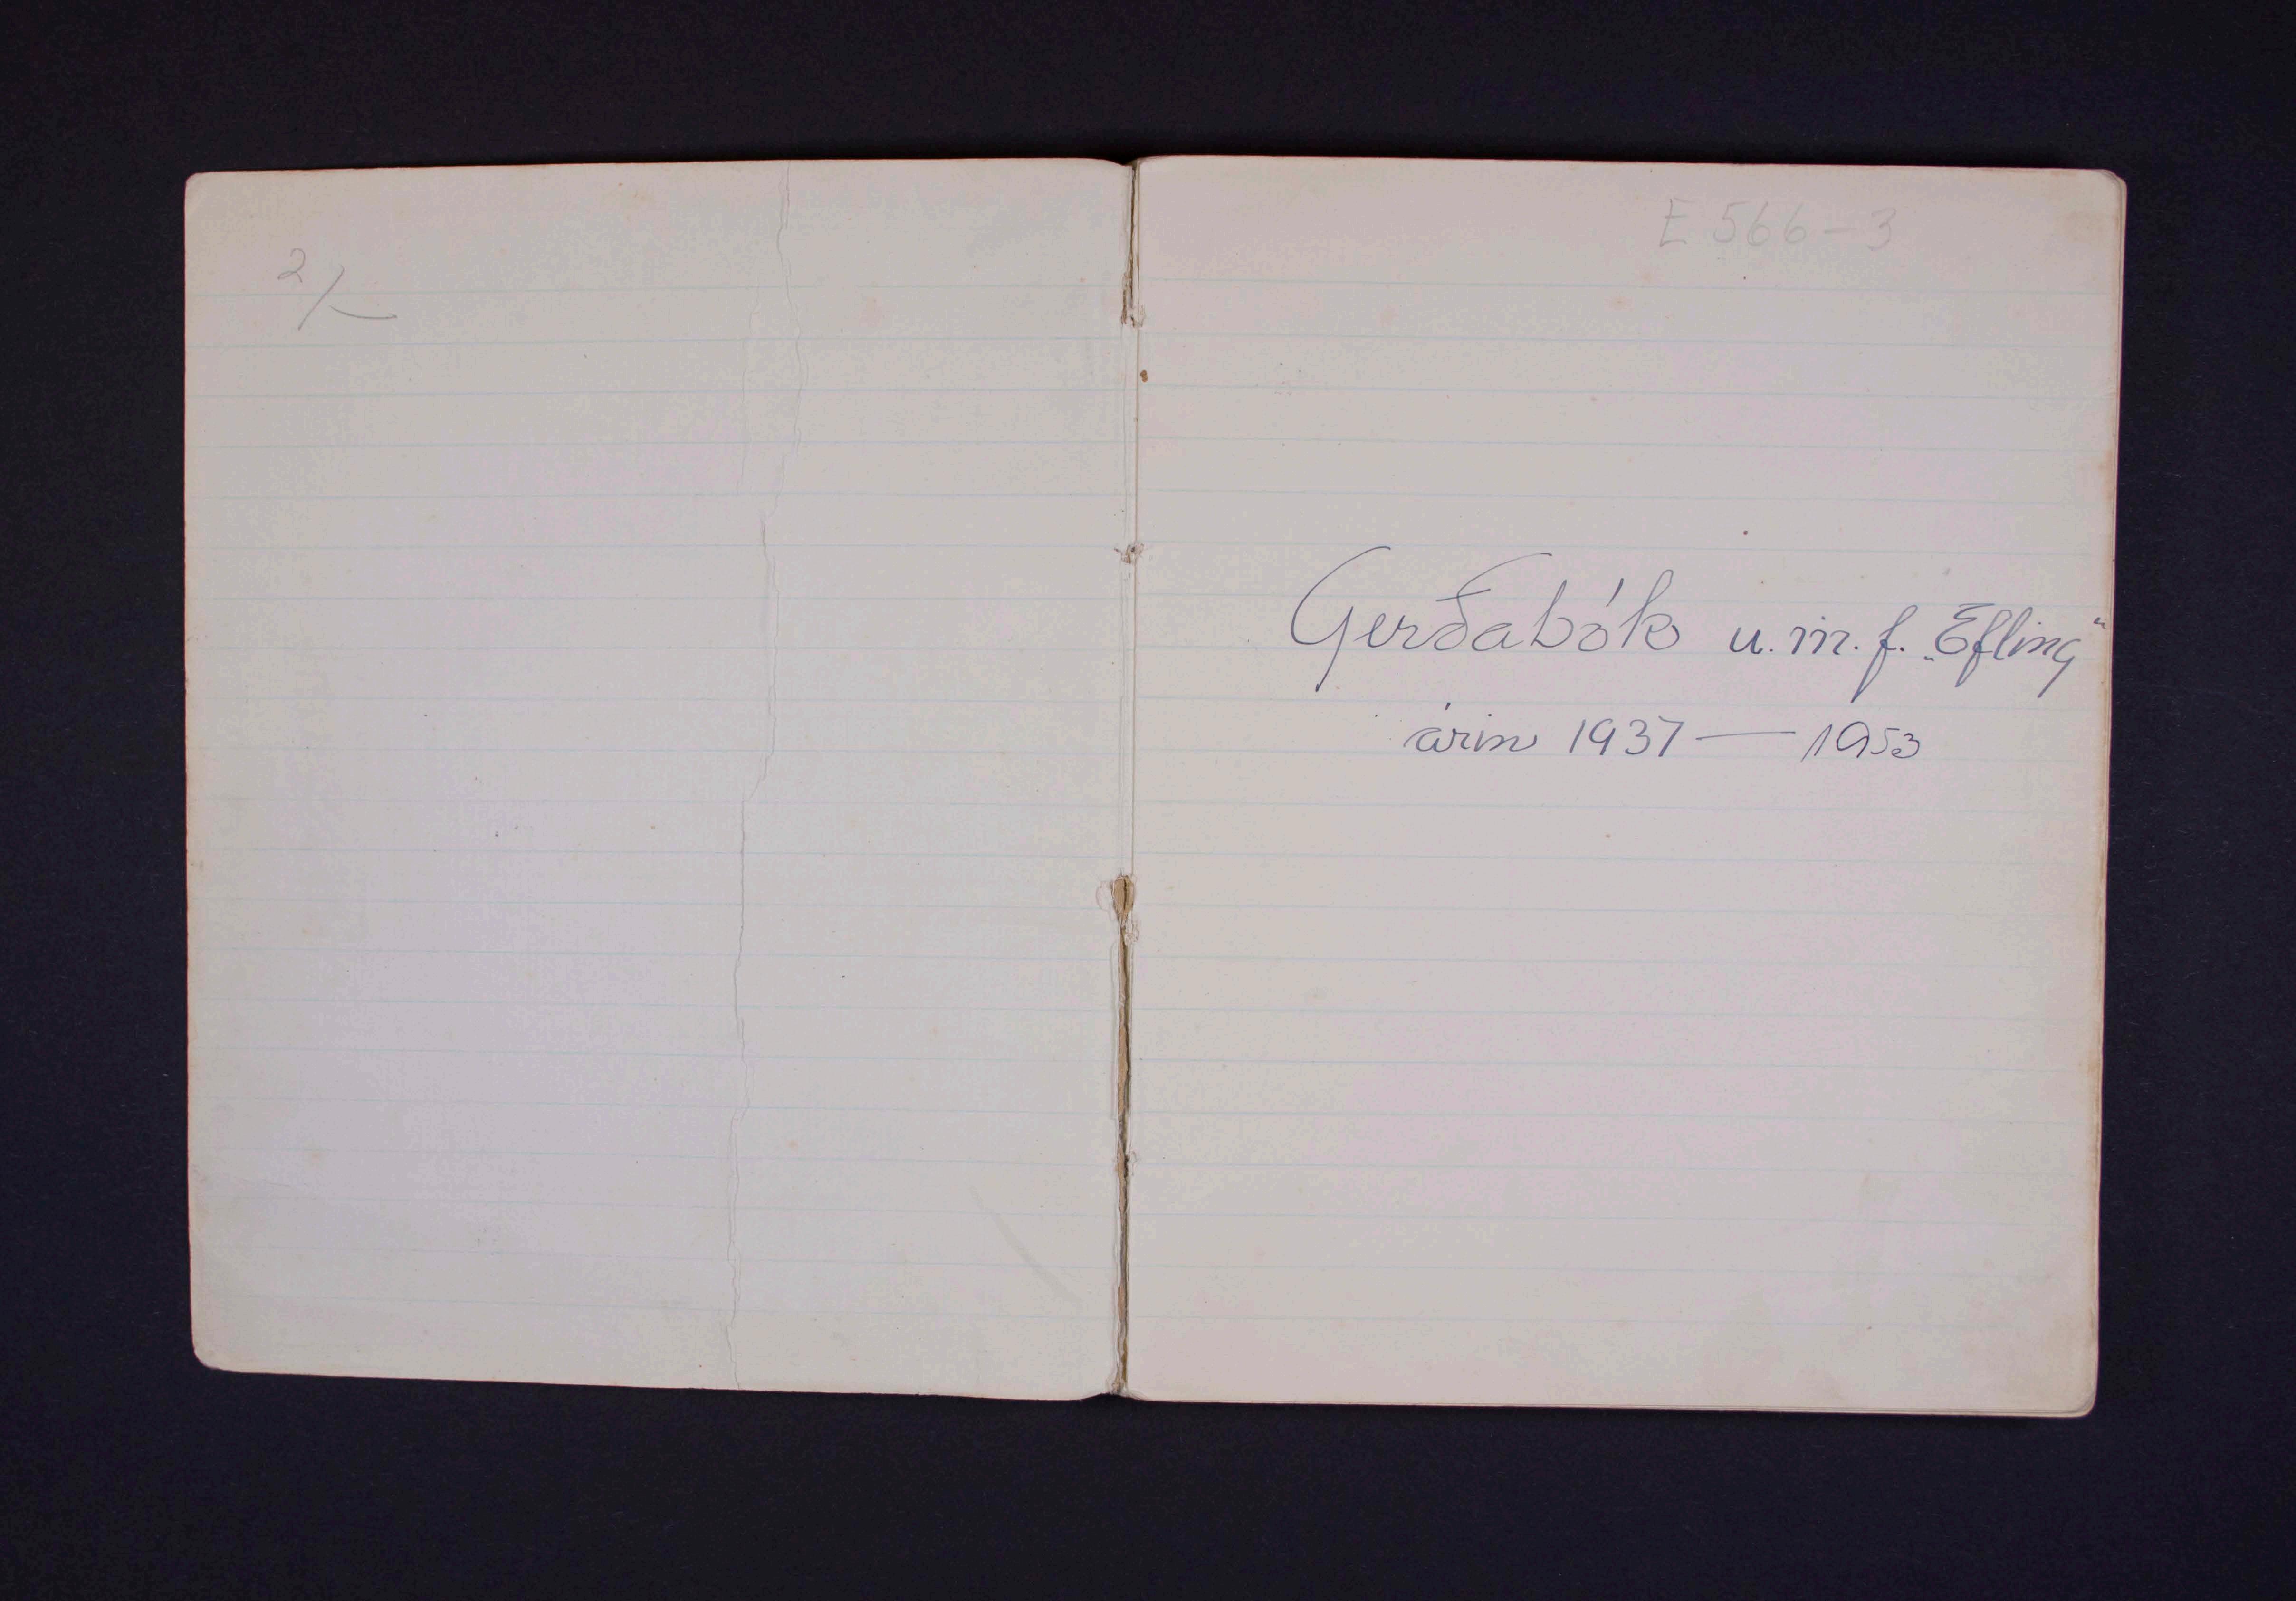 2/
E 566-3
Gerðabók u.m.f. „Efling"
árin 1937 — 1953